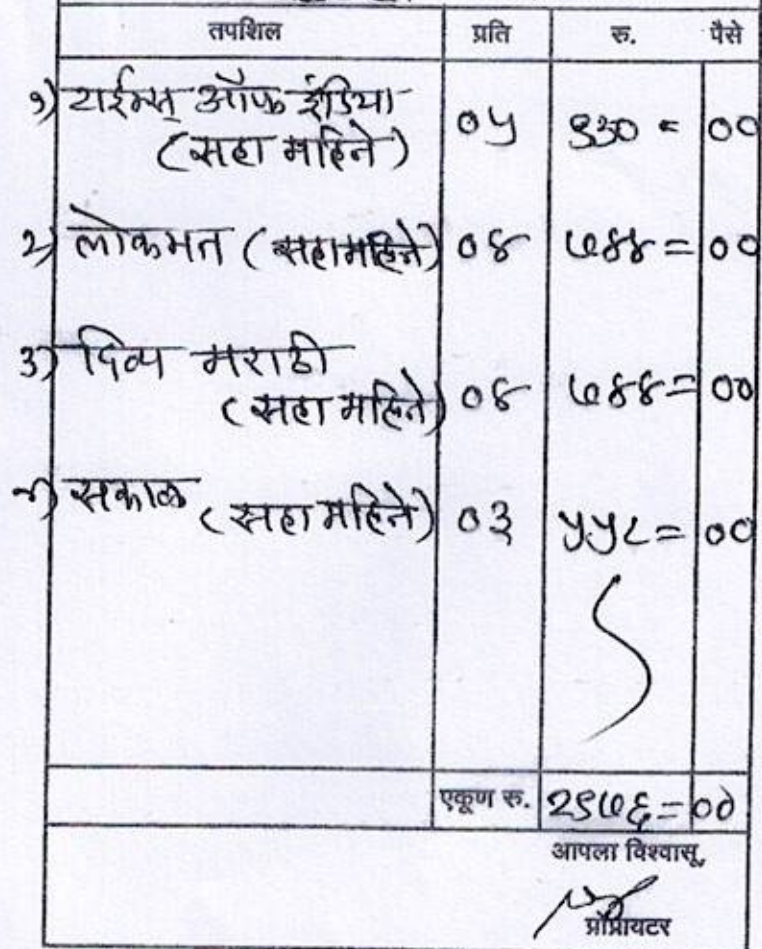 तपशिल प्रति रु. पैसे
१) टाईम्स् ऑफ इंडिया
(सहा महिने) ०५ ९३० = ००
२) लोकमत (सहा महिने) ०४ ७४४ = ००
३) दिव्य मराठी
(सहा महिने) ०४ ७४४ = ००
४) सकाळ (सहा महिने) ०३ ५५८ = ००
एकूण रु. २९७६ = ००
आपला विश्वासू,
प्रोप्रायटर